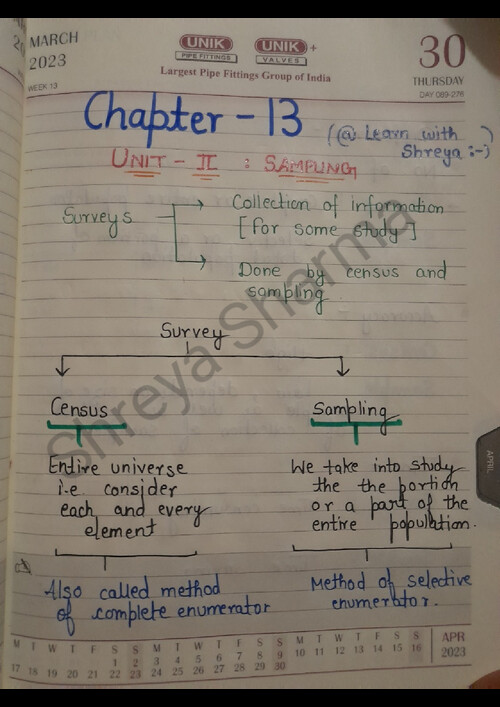 MARCH
2023
WEEK 13
UNIK
PIPE FITTINGS
UNIK +
VALVES
Largest Pipe Fittings Group of India
30
THURSDAY
DAY 089-276
Chapter - 13
(@ Learn with
Shreya :-)
UNIT - II : SAMPLING
Surveys
Collection of information
[for some study]
Done by census and
sampling
Shreya Sharma
Survey
Census
Sampling
Entire universe
i.e consider
each and every
element
We take into study
the the portion
or a part of the
entire population.
Also called method
of complete enumerator
Method of selective
enumerator.
APRIL
M T W T F S S M T W T F S S M T W T F S S APR
1 2 3 4 5 6 7 8 9 10 11 12 13 14 15 16 2023
17 18 19 20 21 22 23 24 25 26 27 28 29 30